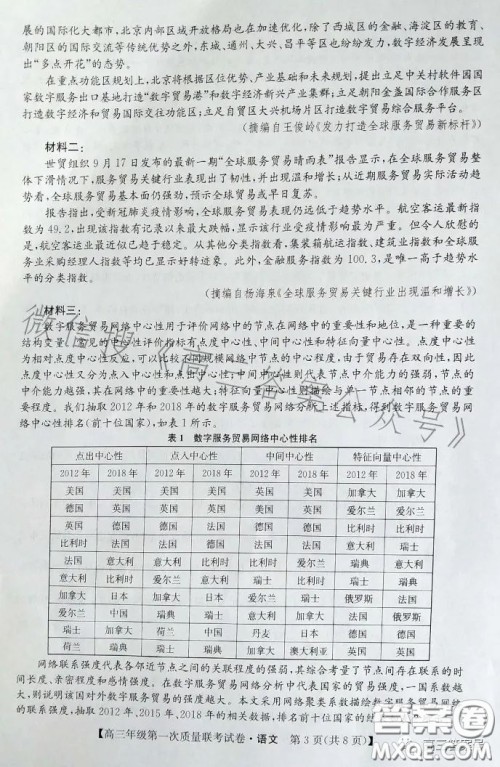 展的国际化大都市,北京内部区域开放格局也在加速优化,除了西城区的金融、海淀区的教育、
朝阳区的国际交流等传统优势之外,东城、通州、大兴、昌平等区也纷纷发力,数字经济发展呈现
出“多点开花”的态势。
在重点功能区规划上,北京将根据区位优势、产业基础和未来规划,提出立足中关村软件园国
家数字服务出口基地打造“数字贸易港”和数字经济新兴产业集群;立足朝阳金盏国际合作服务区
打造数字经济和贸易国际交往功能区;立足自贸区大兴机场片区打造数字贸易综合服务平台。
(摘编自王俊岭《发力打造全球服务贸易新标杆》)
材料二:
世贸组织9月17日发布的最新一期“全球服务贸易晴雨表”报告显示,在全球服务贸易整
体下滑情况下,服务贸易关键行业表现出了韧性,并出现温和增长;从近期服务贸易实际活动趋势
看,全球服务贸易基本面仍强劲,预示全球贸易或早日复苏。
报告指出,受新冠肺炎疫情影响,全球服务贸易状况仍远低于趋势水平。航空客运最新指
数为49.2,出现该指数有记录以来最大跌幅,显示该行业受疫情影响最为严重。但令人欣慰的
是,航空客运业最近似已趋于稳定。从其他分类指数看,集装箱航运指数、建筑业指数和全球服
务业采购经理人指数等均已显示好转迹象。此外,金融服务指数为100.3,是唯一高于趋势水平
的分类指数。
(摘编自杨海泉《全球服务贸易关键行业出现温和增长》)
材料三:
数字服务贸易网络中心性用于评价网络中的节点在网络中的重要性和地位,是一种重要的
结构变量
中心性评价指标有点度中心性、中间中心性和特征向量中心性。点度中心性
为相对点度中心性
网络中节点的中心性,由于贸易存在双向性,因此
点度中心性又分为点入中心性和点出中心性;中间中心性则代表节点中介能力的强弱,节点的
中介能力越强,其在网络中的重要性越大;特征向量中心性则描绘与单一节点相邻的节点的重
要程度。我们抽取2012年和2018年的数字贸易网络分析上述指标,得到数字服务贸易网
络中心性排名(前十位国家),如表1所示。
表1 数字服务贸易网络中心性排名
点出中心性 点入中心性 中间中心性 特征向量中心性
2012年 2018年 2012年 2018年 2012年 2018年 2012年 2018年
美国 美国 美国 美国 英国 英国 加拿大 加拿大
德国 英国 英国 英国 美国 美国 爱尔兰 爱尔兰
英国 德国 德国 德国 德国 比利时 比利时
比利时 法国 法国 法国 意大利 瑞士
法国 意大利 爱尔兰 意大利 瑞典
意大利 比利时 意大利 爱尔兰 意大利 瑞士 比利时 意大利
加拿大 日本 加拿大 日本 爱尔兰 瑞士 俄罗斯 法国
爱尔兰 中国 瑞典 意大利 瑞士 加拿大 法国 俄罗斯
瑞士 加拿大 荷兰 中国 丹麦 日本 德国 德国
荷兰 瑞士 瑞典 瑞典 加拿大 澳大利亚 英国 英国
网络联系强度代表各邻近节点之间的关联程度的强弱,其综合考量了节点间存在联系的时
间长度、亲密程度和感情强度。在数字服务贸易网络分析中代表国家的贸易强度,一国系数越
大,则说明该国对外数字服务贸易的强度越大。本文采用网络聚类系数描绘数字服务贸易网络
【高三年级第一次质量联考试卷·语文 第3页(共8页)】